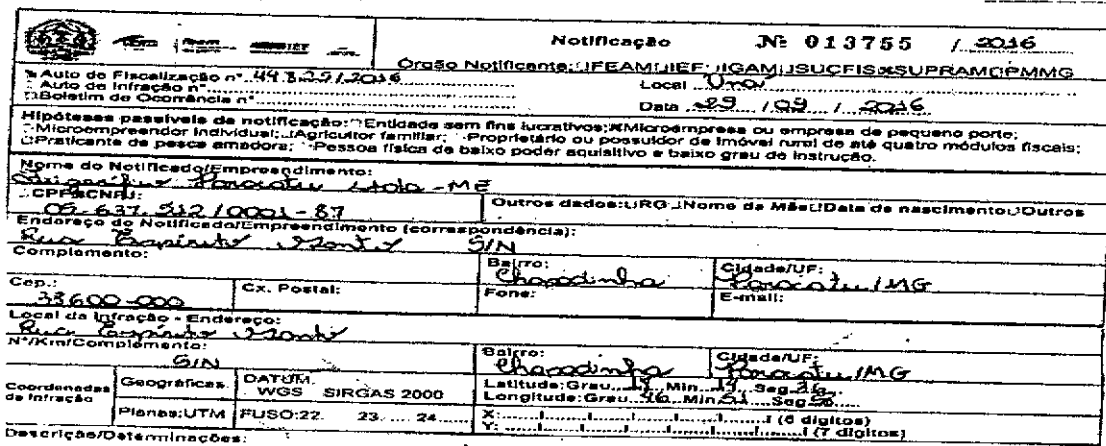 Notificação Nº 013755 / 2016
Órgão Notificante: FEAM IEF IGAM SUCFIS SUPRAM PMMG
Auto de Fiscalização nº 44.825/2016
Auto de Infração nº
Boletim de Ocorrência nº
Local
Data 29 / 09 / 2016
Hipóteses passíveis de notificação: Entidade sem fins lucrativos; Microempresa ou empresa de pequeno porte;
Microempreendor Individual; Agricultor familiar; Proprietário ou possuidor de imóvel rural de até quatro módulos fiscais;
Praticante de pesca amadora; Pessoa física de baixo poder aquisitivo e baixo grau de instrução.
Nome do Notificado/Empreendimento:
Frigorífico Paracatu Ltda-ME
CPF CNPJ:
Outros dados: RG Nome da Mãe Data de nascimento Outros
/0001-87
Endereço do Notificado/Empreendimento (correspondência):
Rua Espírito Santo S/N
Complemento:
Bairro:
Chapadinha
Cidade/UF:
Paracatu/MG
Cep.:
600-000
Cx. Postal:
Fone:
E-mail:
Local da Infração - Endereço:
Rua Espírito Santo
Nº/Km/Complemento:
S/N
Bairro:
Chapadinha
Cidade/UF:
Paracatu/MG
Coordenadas da Infração
Geográficas
DATUM:
WGS SIRGAS 2000
Latitude: Grau Min Seg
Longitude: Grau 46 Min 51 Seg
Planas: UTM
FUSO: 22. 23. 24
X: (6 dígitos)
Y: (7 dígitos)
Descrição/Determinações: